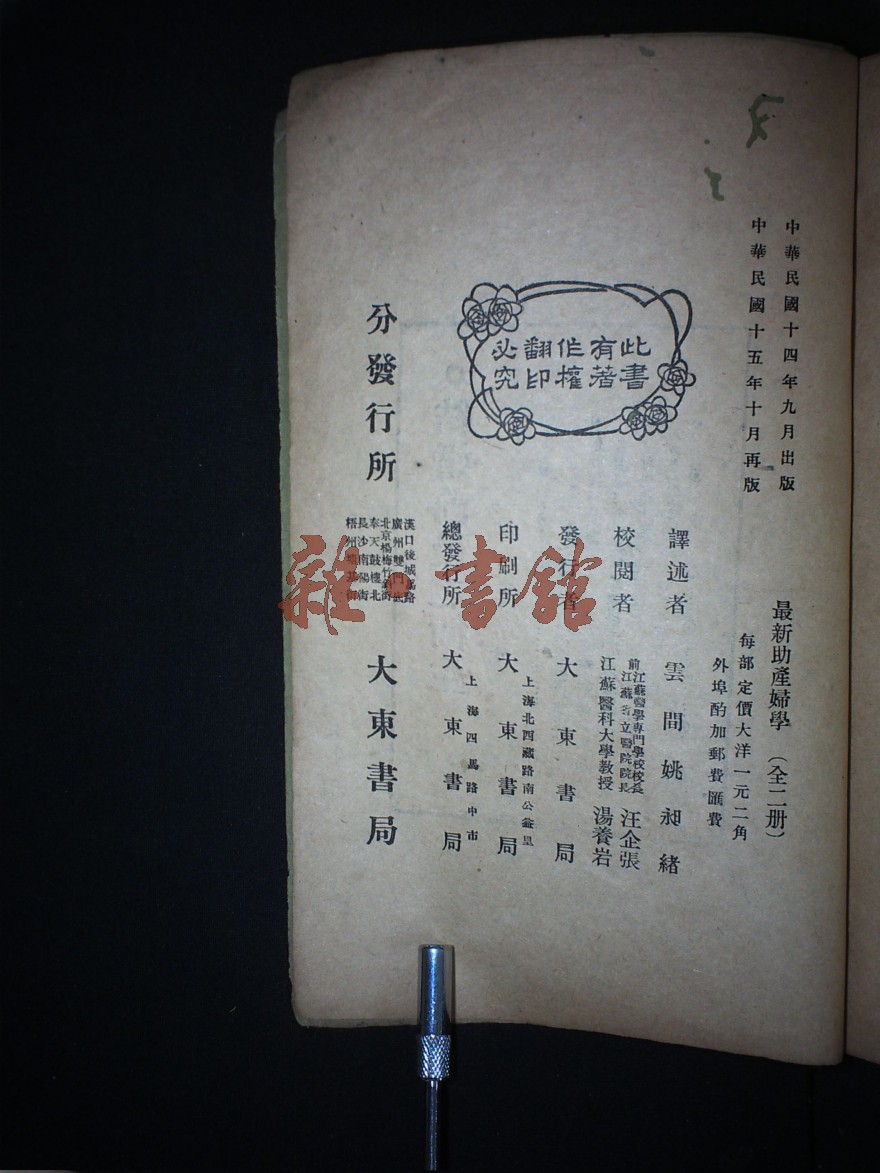 中華民國十四年九月出版
中華民國十五年十月再版
最新助產婦學（全二册）
每部定價大洋一元二角
外埠酌加郵費匯費
此書
有著
作權
翻印
必究
譯述者　雲間姚昶緒
校閱者　前江蘇醫學專門學校校長
江蘇省立醫院院長　汪企張
江蘇醫科大學教授　湯養岩
發行者　大東書局
印刷所　上海北西藏路南公益里
大東書局
總發行所　上海四馬路中市
大東書局
分發行所
漢口後城馬路
廣州雙門底
北京楊梅竹斜街
奉天鼓樓北
長沙南陽街
梧州
大東書局
雜·書館